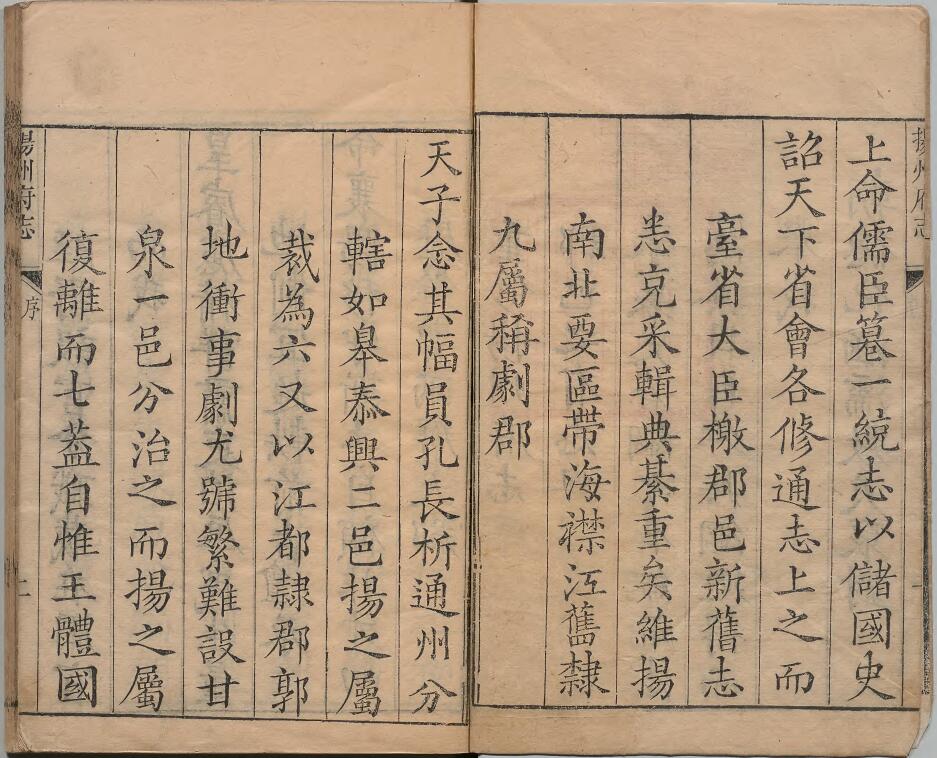 揚州府志
上命儒臣纂一統志以儲國史
詔天下省會各修通志上之而
臺省大臣檄郡邑新舊志
恙克采輯典綦重矣維揚
南北要區帶海襟江舊隸
九屬稱劇郡
天子念其幅員孔長析通州分
轄如皋泰興二邑揚之屬
裁為六又以江都隸郡郭
地衝事劇尤號繁難設甘
泉一邑分治之而揚之屬
復離而七蓋自惟王體國
揚州府志
序
二